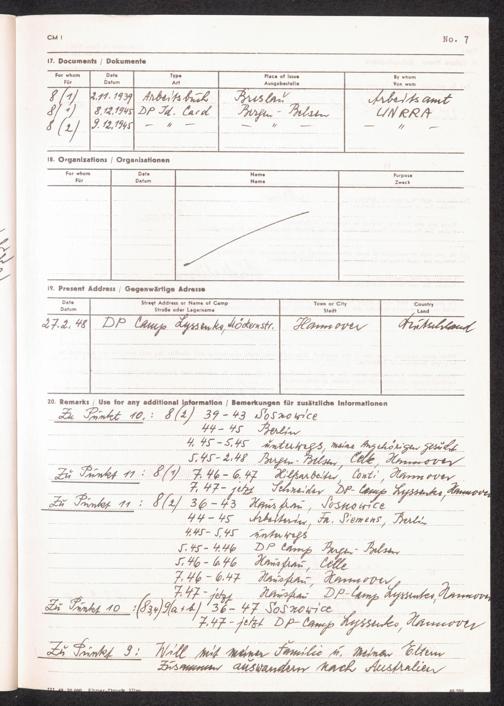 CM 1
No. 7
17. Documents / Dokumente
For whom Date Type Place of Issue By whom
Für Datum Art Ausgabestelle Von wem
8(1) 2.11.1939 Arbeitsbuch Breslau Arbeitsamt
8(1) 8.12.1945 DP Id. Card Bergen-Belsen UNRRA
8(2) 9.12.1945 — " — — " — — " —
18. Organizations / Organisationen
For whom Date Name Purpose
Für Datum Name Zweck
19. Present Address / Gegenwärtige Adresse
Date Street Address or Name of Camp Town or City Country
Datum Straße oder Lagername Stadt Land
27.2.48 DP Camp Lyssenko, Hannover Deutschland
20. Remarks / Use for any additional information / Bemerkungen für zusätzliche Informationen
Zu Punkt 10.: 8(2) 39-43 Sosnowice
44-45 Berlin
4.45-5.45 unterwegs, meine Angehörigen gesucht
5.45-2.48 Bergen-Belsen, Celle, Hannover
Zu Punkt 11: 8(1) 7.46-6.47 Hilfsarbeiter Conti, Hannover
7.47-jetzt Schneider DP-Camp Lyssenko, Hannover
Zu Punkt 11: 8(2) 36-43 Hausfrau, Sosnowice
44-45 Arbeiterin, Fa. Siemens, Berlin
4.45-5.45 unterwegs
5.45-4.46 DP Camp Bergen-Belsen
5.46-6.46 Hausfrau, Celle
7.46-6.47 Hausfrau, Hannover
7.47-jetzt Hausfrau DP-Camp Lyssenko, Hannover
Zu Punkt 10 : 36-47 Sosnowice
7.47-jetzt DP Camp Lyssenko, Hannover
Zu Punkt 9: Will mit meiner Familie u. meinen Eltern
zusammen auswandern nach Australien